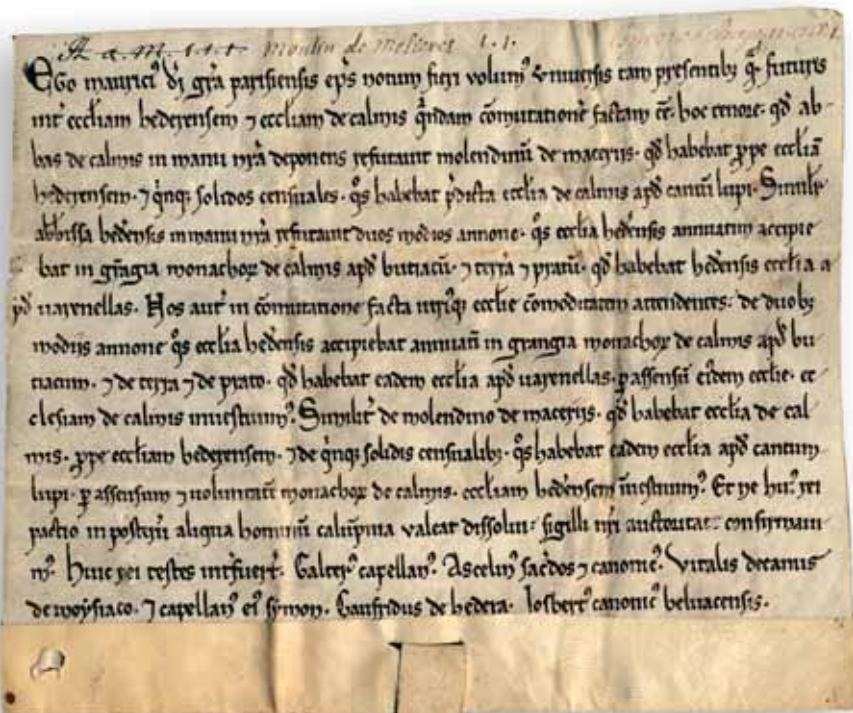 A a. M. 1.1.1. moulin de
EGo maurici9 di gra parisiensis eps notum fieri volum9 vniuersis tam presentib; qm futuris
int eccliam hederensem ⁊ eccliam de calmis quandam comutatione factam ee. hoc tenore. qd ab-
bas de calmis in manu nra deponens refutauit molendinu de maceriis. qd habebat ppe eccliam
hederensem. ⁊ qinq; solidos censuales. qs habebat pdicta ecclia de calmis apd cantu lupi. Similr
abbissa hedensis in manu nra refutauit duos modios annone. qs ecclia hedensis annuatim accipie
bat in grangia monachoꝝ de calmis apd butiacu. ⁊ terra ⁊ pratu. qd habebat hedensis ecclia a
pd uarenellas. Nos aut in comutatione facta utriq; ecclie comoditatem attendentes. de duob;
modiis annone qs ecclia hedensis accipiebat annuati in grangia monachoꝝ de calmis apd bu
tiacum. ⁊ de terra ⁊ de prato. qd habebat eadem ecclia apd uarenellas. p assensu eidem ecclie. ec
clesiam de calmis inuestiuim9. Similit de molendino de maceriis. qd habebat ecclia de cal
mis. ppe eccliam hederensem. ⁊ de qinq; solidis censualib;. qs habebat eadem ecclia apd cantum
lupi. p assensum ⁊ uoluntate monachoꝝ de calmis. eccliam hedensem inuestiuim9. Et ne hui9 rei
pactio in posteru aliqua hominu calupnia valeat dissolui. sigilli nri auctoritate confirmaui
m9. Huic rei testes intfuert. Galteri9 capellan9. Ascelin9 sacdos ⁊ canonic9. Vitalis decanus
de moysiaco. ⁊ capellan9 ei9 symon. Gaufridus de hedera. Iosbert9 canonic9 beluacensis.